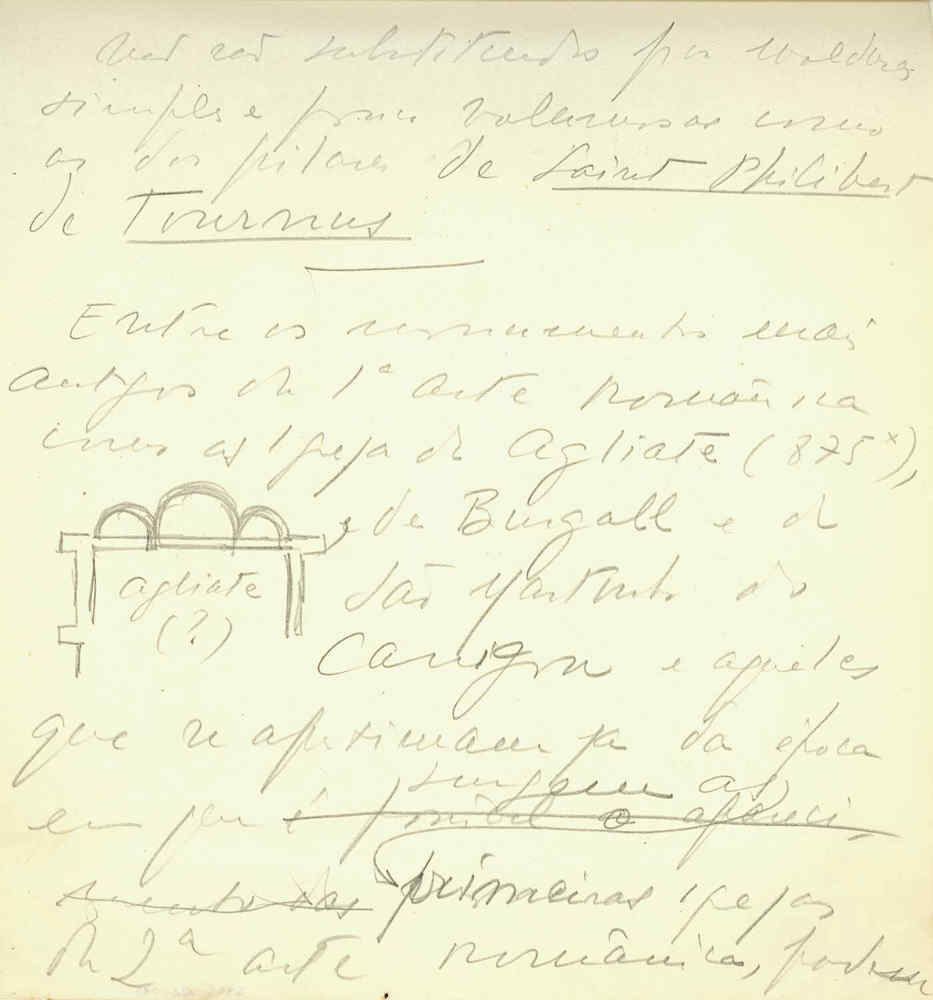 não são substituidos por molduras
simples e pouco volumosas como
as dos pilares de Saint Philibert
de Tournus
Entre os monumentos mais
antigos da 1ª arte românica
como as Igreja de Agliate (875 x),
e de Burgall e de
São Martinho do
Canigou e aqueles
agliate
(?)
que se aproximam já da época
surgem as
em que é possivel o apareci-
mento das primeiras igrejas
da 2ª arte românica, podem